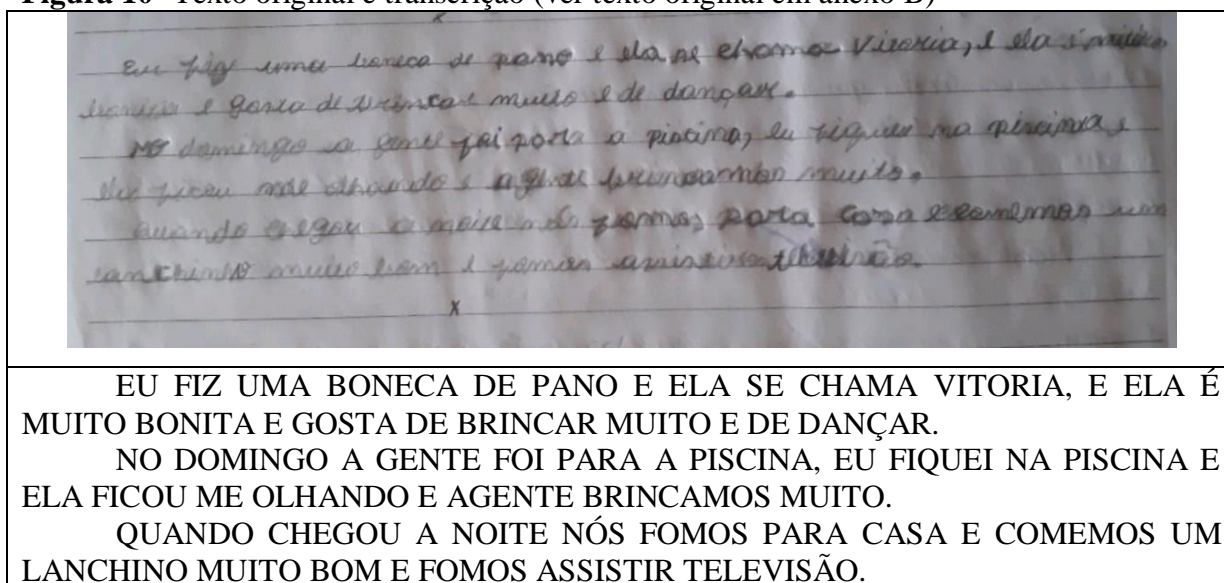 Figura 10- Texto original e transcrição (ver texto original em anexo B)
x
Eu fiz uma boneca de pano e ela se chama Vitoria, e ela é muito
bonita e gosta de brincar muito e de dançar.
No domingo a gente foi para a piscina, eu fiquei na piscina e
ela ficou me olhando e agente brincamos muito.
quando chegou a noite nós fomos para casa e comemos um
lanchinho muito bom e fomos assistir televisão.
x
EU FIZ UMA BONECA DE PANO E ELA SE CHAMA VITORIA, E ELA É
MUITO BONITA E GOSTA DE BRINCAR MUITO E DE DANÇAR.
NO DOMINGO A GENTE FOI PARA A PISCINA, EU FIQUEI NA PISCINA E
ELA FICOU ME OLHANDO E AGENTE BRINCAMOS MUITO.
QUANDO CHEGOU A NOITE NÓS FOMOS PARA CASA E COMEMOS UM
LANCHINO MUITO BOM E FOMOS ASSISTIR TELEVISÃO.